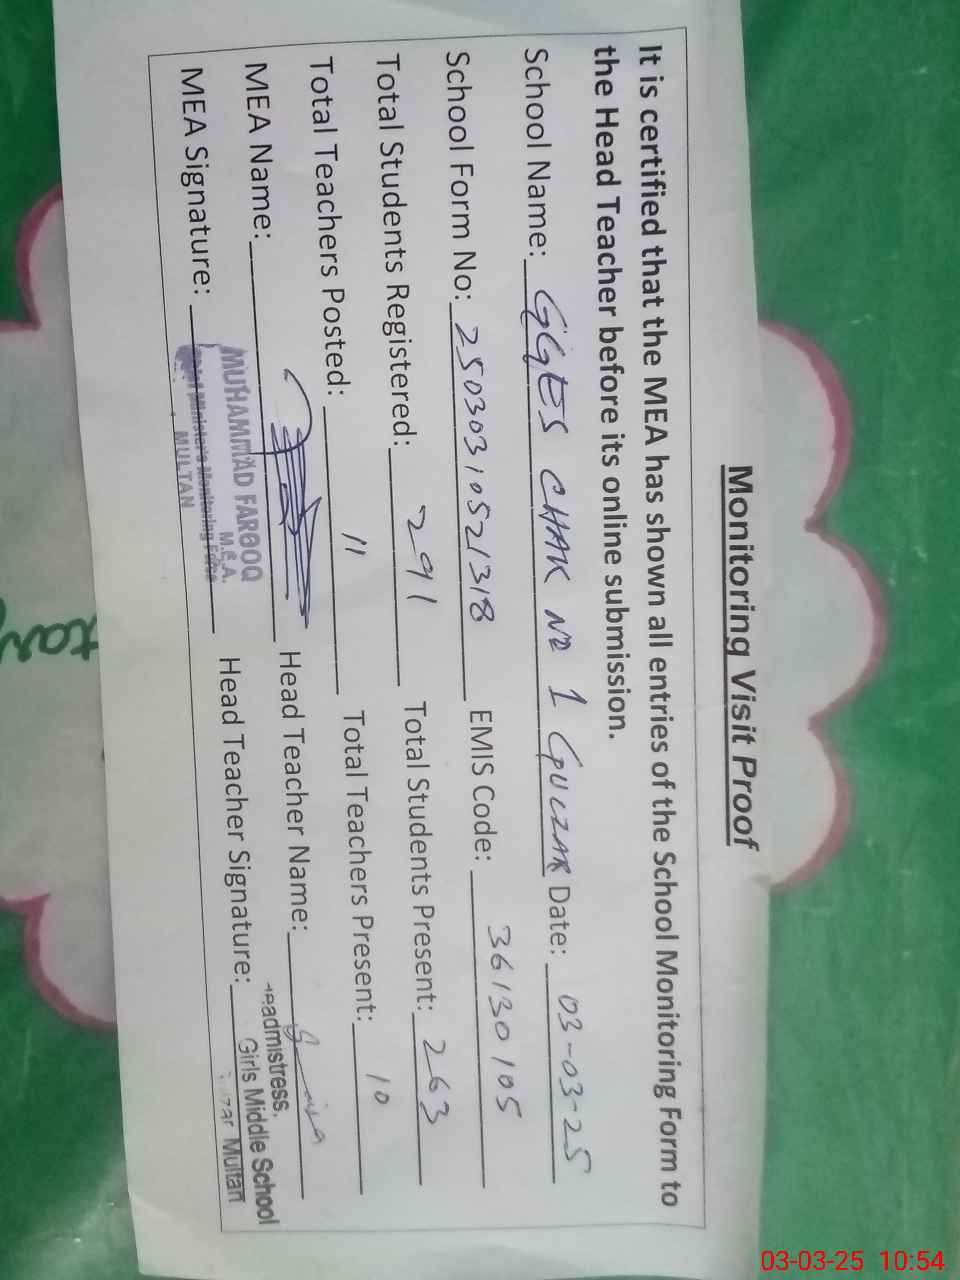 Monitoring Visit Proof
It is certified that the MEA has shown all entries of the School Monitoring Form to
the Head Teacher before its online submission.
School Name: GGES CHAK NO 1 GULZAR Date: 03-03-25
School Form No: 2503031051318 EMIS Code: 36130105
Total Students Registered: 291 Total Students Present: 263
Total Teachers Posted: 11 Total Teachers Present: 10
MEA Name: Head Teacher Name:
MEA Signature: Head Teacher Signature:
MUHAMMAD FAROOQ
M.E.A.
Chief Minister's Monitoring Force
MULTAN
Headmistress.
Girls Middle School
Multan
03-03-25 10:54